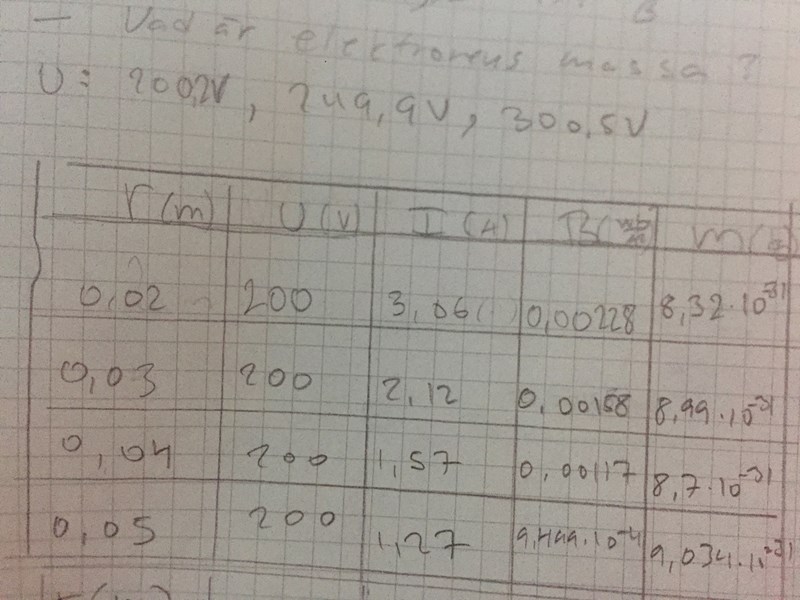 — Vad är elektronens massa?
U: 200,2V, 249,9V, 300,5V
r (m) U (V) I (A) B m
0,02 200 3,06 0,00228 8,32·10⁻³¹
0,03 200 2,12 0,00158 8,99·10⁻³¹
0,04 200 1,57 0,00117 8,7·10⁻³¹
0,05 200 1,27 9,449·10⁻⁴ 9,034·10⁻³¹